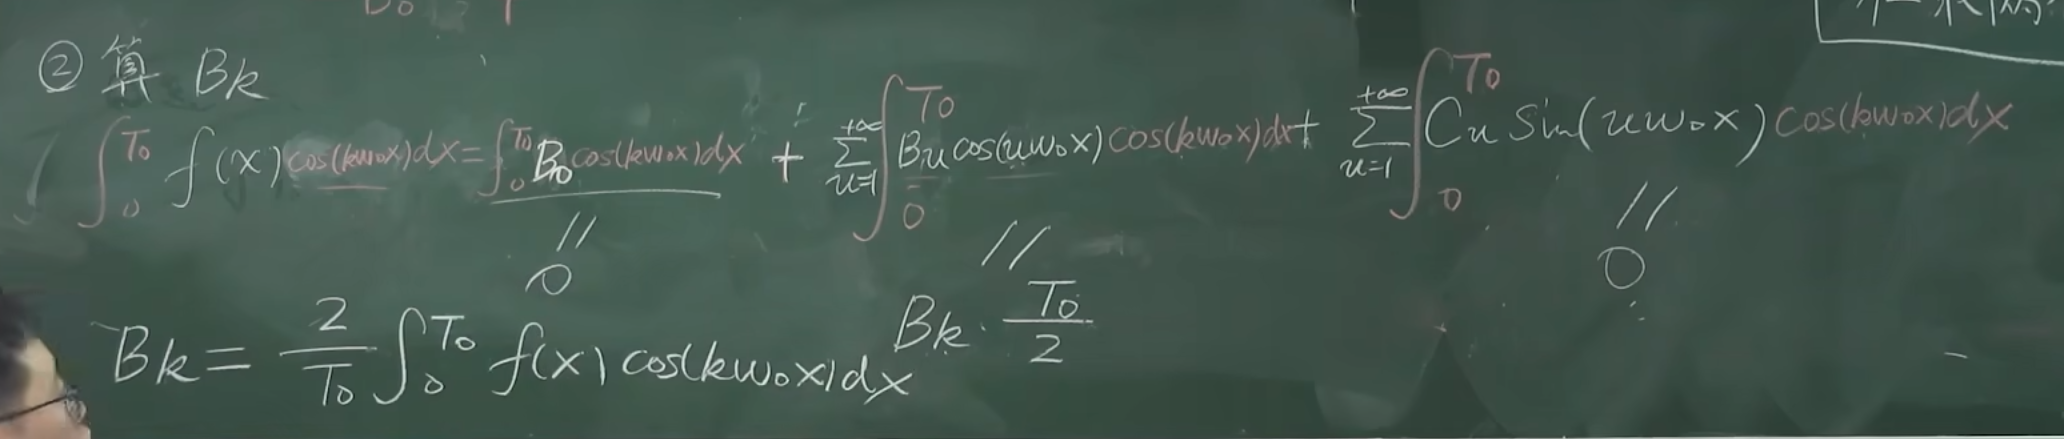 ② 算 Bk
∫₀^T₀ f(x)cos(kw₀x)dx=∫₀^T₀ B₀cos(kw₀x)dx + ∑ₙ₌₁^+∞ ∫₀^T₀ Bₙcos(nw₀x)cos(kw₀x)dx+ ∑ₙ₌₁^+∞ ∫₀^T₀ CₙSin(nw₀x)cos(kw₀x)dx
// // //
0 Bk·T₀/2 0
Bk= 2/T₀ ∫₀^T₀ f(x)cos(kw₀x)dx